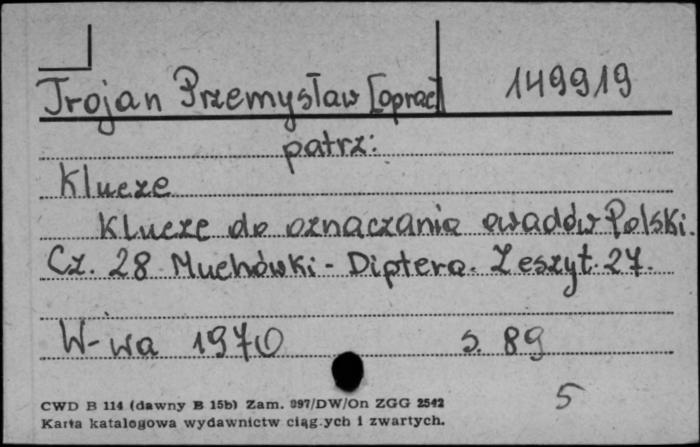 Trojan Przemysław [oprac] 149919
patrz:
Klucze
Klucze do oznaczania owadów Polski.
Cz. 28 Muchówki - Diptera. Zeszyt. 27.
W-wa 1970 s. 89
5
CWD B 114 (dawny B 15b) Zam. 997/DW/On ZGG 2542
Karta katalogowa wydawnictw ciąg.ych i zwartych.